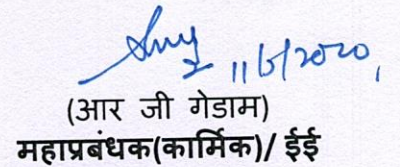 11/6/2020
(आर जी गेडाम)
महाप्रबंधक(कार्मिक)/ ईई